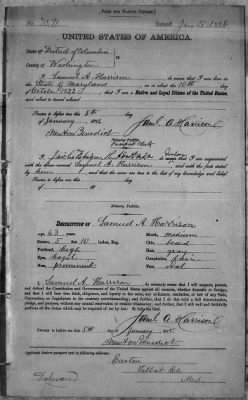 [FORM FOR NATIVE CITIZEN.]
Issued Jan 5 1886
UNITED STATES OF AMERICA.
State of District of Columbia
County of Washington
I, Samuel A. Harrison, do swear that I was born in
the State of Maryland, on or about the 10th day
of October 1822; that I am a Native and Loyal Citizen of the United States,
and about to travel abroad.
Sworn to before me this 5th day
of January, 1886
Saml. A. Harrison
Notary Public.
I, do swear that I am acquainted with
the above-named Samuel A. Harrison, and with the facts stated
by him, and that the same are true to the best of my knowledge and belief.
Sworn to before me this day
of 18
Notary Public.
DESCRIPTION OF Samuel A. Harrison
Age, 63 years.
Stature, 5 feet 10 inches, Eng.
Forehead, high
Eyes, hazel
Nose, prominent
Mouth, medium
Chin, beard
Hair, gray
Complexion, fair
Face, oval
I, Samuel A. Harrison, do solemnly swear that I will support, protect,
and defend the Constitution of the United States against all enemies, whether domestic or foreign;
and that I will bear true faith, allegiance, and loyalty to the same, any ordinance, resolution, or law of any State,
Convention, or Legislature to the contrary notwithstanding; and further, that I do this with a full determination,
pledge, and purpose, without any mental reservation or evasion whatsoever; and further, that I will well and faithfully
perform all the duties which may be required of me by law: So help me God.
Saml. A. Harrison
Sworn to before me this 5th day of January 1886
Applicant desires passport sent to following address:
Easton
Talbot Co.
Md.